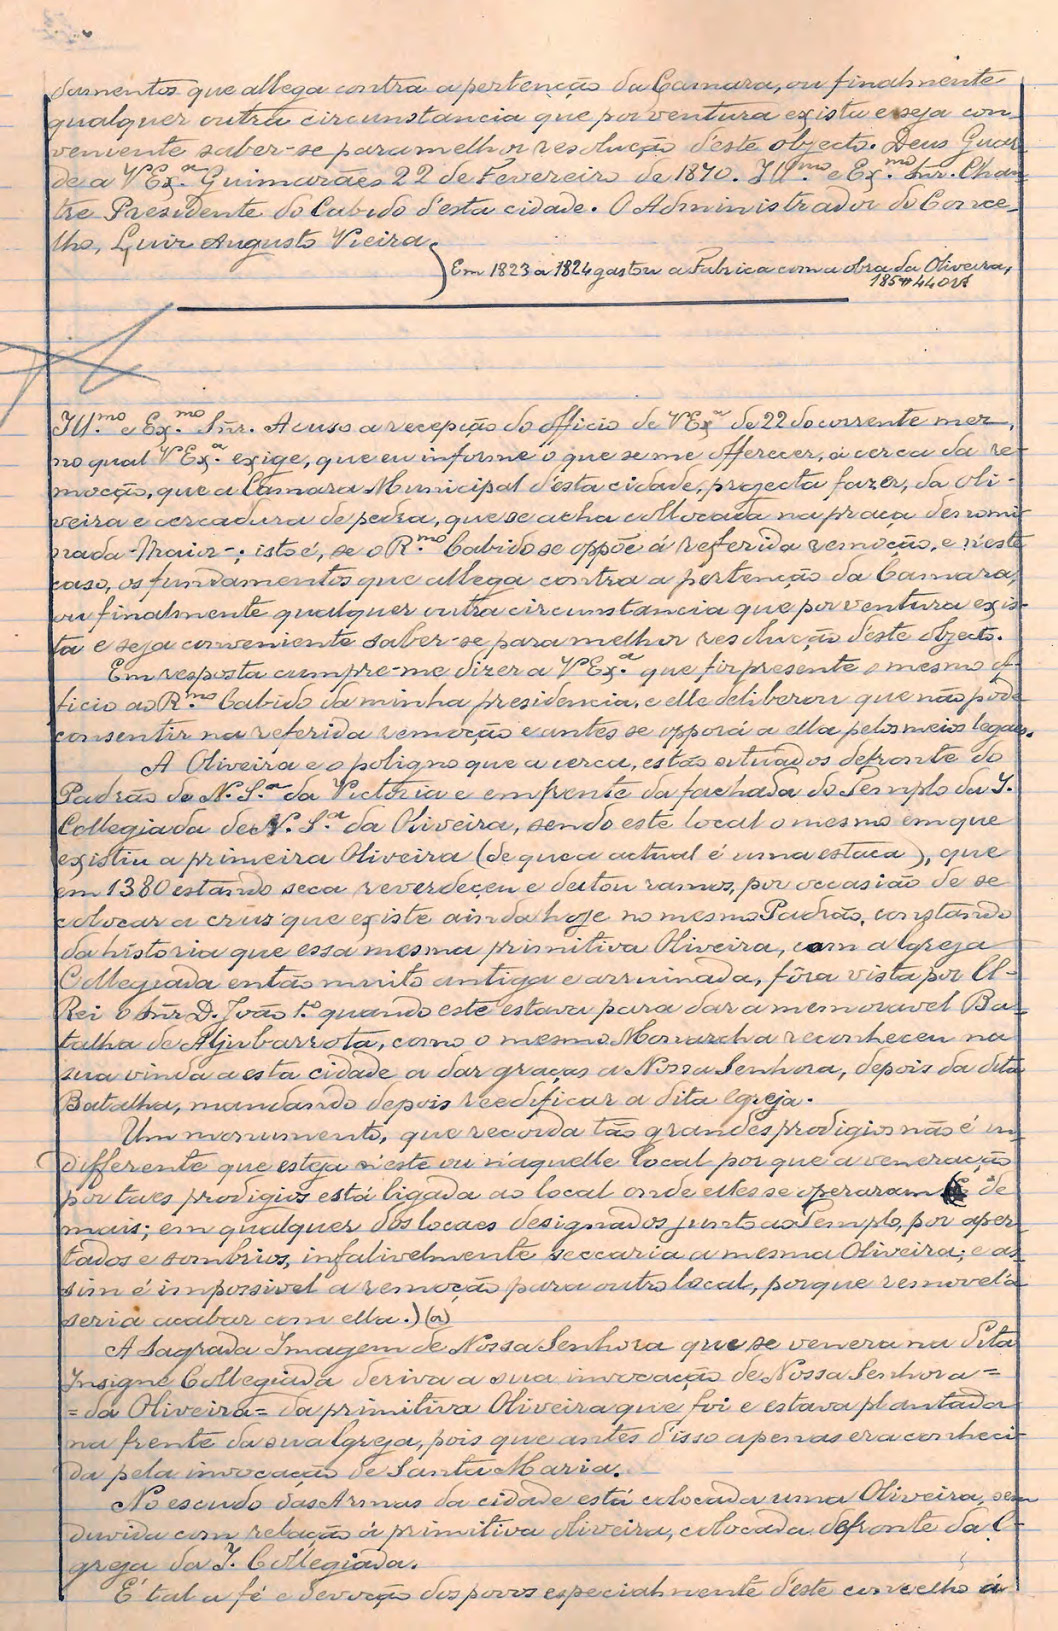 damentos que allega contra a pertenção da Camara, ou finalmente
qualquer outra circunstancia que porventura exista e seja con-
veniente saber-se para melhor resolução d'este objecto. Deus Guar-
de a V Ex.ª Guimarães 22 de Fevereiro de 1870. Ill.mo e Ex.mo Snr. Chan-
tre Presidente do Cabido d'esta cidade. O Administrador do Conce-
lho, Luiz Augusto Vieira.
Em 1823 a 1824 gastou a Fabrica com a obra da Oliveira,
185#440 rs
Ill.mo e Ex.mo Snr. Acuso a recepção do officio de V Exª de 22 do corrente mez,
no qual V Ex.ª exige, que eu informe o que se me offerecer, á cerca da re-
moção, que a Camara Municipal d'esta cidade, projecta fazer, da oli-
veira e cercadura de pedra, que se acha collocada na praça denomi-
nada - Maior -; isto é, se o R.mo Cabido se oppõe á referida remoção, e n'este
caso, os fundamentos que allega contra a pertenção da Camara,
ou finalmente qualquer outra circunstancia que porventura exis-
ta e seja conveniente saber-se para melhor resolucção d'este objecto.
Em resposta cumpre-me dizer a V Ex.ª que fiz presente o mesmo of-
ficio ao R.mo Cabido da minha presidencia, e elle deliberou que não póde
consentir na referida remoção e antes se opporá a ella pelos meios legaes.
A Oliveira e o poligno que a cerca, estão situados defronte do
Padrão de N. S.ª da Victoria e em frente da fachada do Templo da I.
Collegiada de N. S.ª da Oliveira, sendo este local o mesmo em que
existiu a primeira Oliveira (de que a actual é uma estaca), que
em 1380 estando seca reverdeçeu e deitou ramos, por occasião de se
colocar a cruz que existe ainda hoje no mesmo Padrão, constando
da historia que essa mesma primitiva Oliveira, com a Igreja
Collegiada então muito antiga e arruinada, fôra vista por El-
Rei o Snr D. João 1.º quando este estava para dar a memoravel Ba-
talha de Aljubarrota, como o mesmo Monarcha reconheceu na
sua vinda a esta cidade a dar graças a Nossa Senhora, depois da dita
Batalha, mandando depois reedificar a dita Igreja.
Um monumento, que recorda tão grandes prodigios não é in-
differente que esteja n'este ou n'aquelle local porque a veneração
por taes prodigios está ligada ao local onde elles se operaram de
mais; em qualquer dos locaes designados junto ao Templo, por aper-
tados e sombrios, infalivelmente seccaria a mesma Oliveira; e as-
sim é impossivel a remoção para outro local, porque removel'a
seria acabar com ella.) (a)
A Sagrada Imagem de Nossa Senhora que se venera na dita
Insigne Collegiada deriva a sua invocação de Nossa Senhora =
= da Oliveira = da primitiva Oliveira que foi e estava plantada
na frente da sua Igreja, pois que antes d'isso apenas era conheci-
da pela invocação de Santa Maria.
No escudo das Armas da cidade está colocada uma Oliveira, sem
duvida com relação á primitiva oliveira, colocada defronte da I-
greja da I. Collegiada.
É tal a fé e devoção dos povos especialmente d'este concelho á